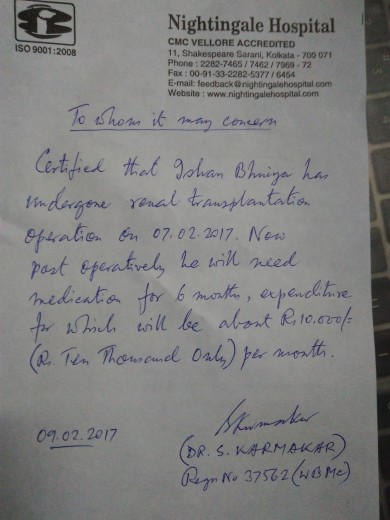 Nightingale Hospital
CMC VELLORE ACCREDITED
ISO 9001:2008
11, Shakespeare Sarani, Kolkata - 700 071
Phone : 2282-7465 / 7462 / 7969 - 72
Fax : 00-91-33-2282-5377 / 6454
E-mail: feedback@nightingalehospital.com
Website : www.nightingalehospital.com
To whom it may concern
Certified that Ishan Bhuiya has
undergone renal transplantation
operation on 07.02.2017. Now
post operatively he will need
medication for 6 months, expenditure
for which will be about Rs 10,000/-
(Rs. Ten Thousand Only) per month.
SKarmakar
09.02.2017
(DR. S. KARMAKAR)
Regn No 37562 (WBMC)